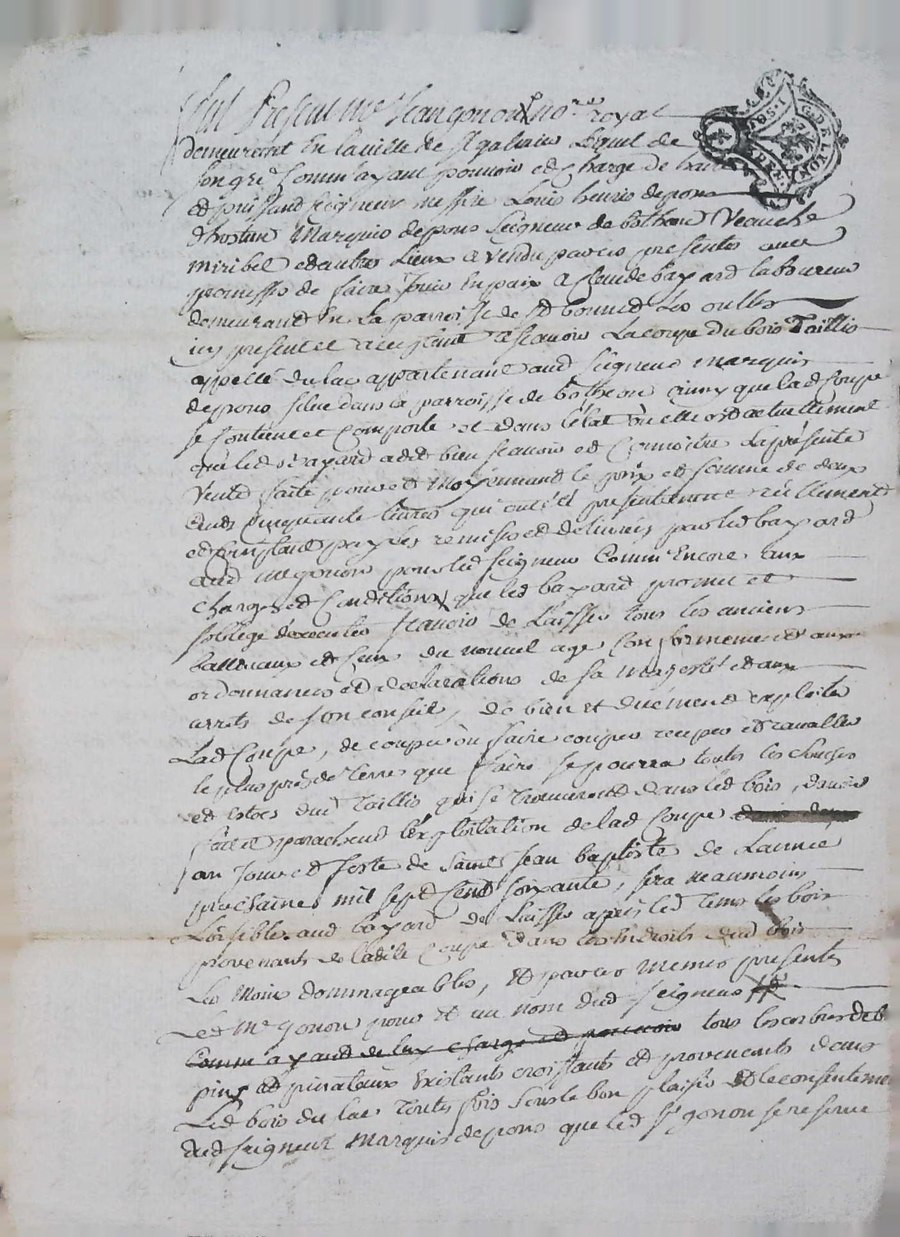 Fut Present me Jean gonon no.re royal
demeurant En la ville de st galmier Lequel de
son gré Comm'ayant pouvoir et charge de haut
et puissant seigneur messire Louis henris de pons
dhostun Marquis de pons Seigneur de bothon Veauche
miribel et autres Lieux a vendu par ces presentes avec
promesse de faire Jouir en paix a Claude bayard laboureur
demeurant En La parroisse de st bonnet Les oulles
icy present et acceptant a scavoir La coupe du bois Taillis
appellé du lac appartenant aud seigneur marquis
de pons situé dans la parroisse de botheon ainsy que lad Coupe
se Contient et Comporte et dans l'état ou elle est actuellement
que led bayard a dit bien scavoir et Connoitre La presente
Vente faite pour et moyennant le prix et somme de deux
cents Cinquante livres qui ont été presentement reellement
et Comptant payées remises et delivrées par led bayard
aud me gonon pour led seigneur Comm'Encore aux
charges et Conditions que led bayard promet et
s'oblige d'executer scavoir de Laisser tous les anciens
balliveaux et Ceux du nouvel age Conformement aux
ordonnances et declarations de sa majesté et aux
arrets de son conseil, de bien et duëment exploiter
Lad Coupe, de couper ou faire couper receper et ravaller
le plus près de terre que faire se pourra toutes les souches
et estocs dud Taillis qui se trouveront dans led bois, d'avoir
fait et parachevé l'exploitation de lad Coupe
au Jour et feste de Saint Jean baptiste de L'année
prochaine mil sept Cent soixante, sera neaumoins
Loisible aud bayard de Laisser après led tems les bois
provenants de ladite Coupe dans les Endroits dud bois
Les moins dommageables, et par ces memes presentes
Led Me Gonon pour et au nom dud seigneur
Comm'ayant de luy charge et pouvoir tous les arbres de
pins et pinateaux Existants croissants et provenants dans
Led bois du lac Toutefois sous le bon plaisir et le consentement
dud seigneur marquis de pons que led sr gonon se reserve
G. DE LYON